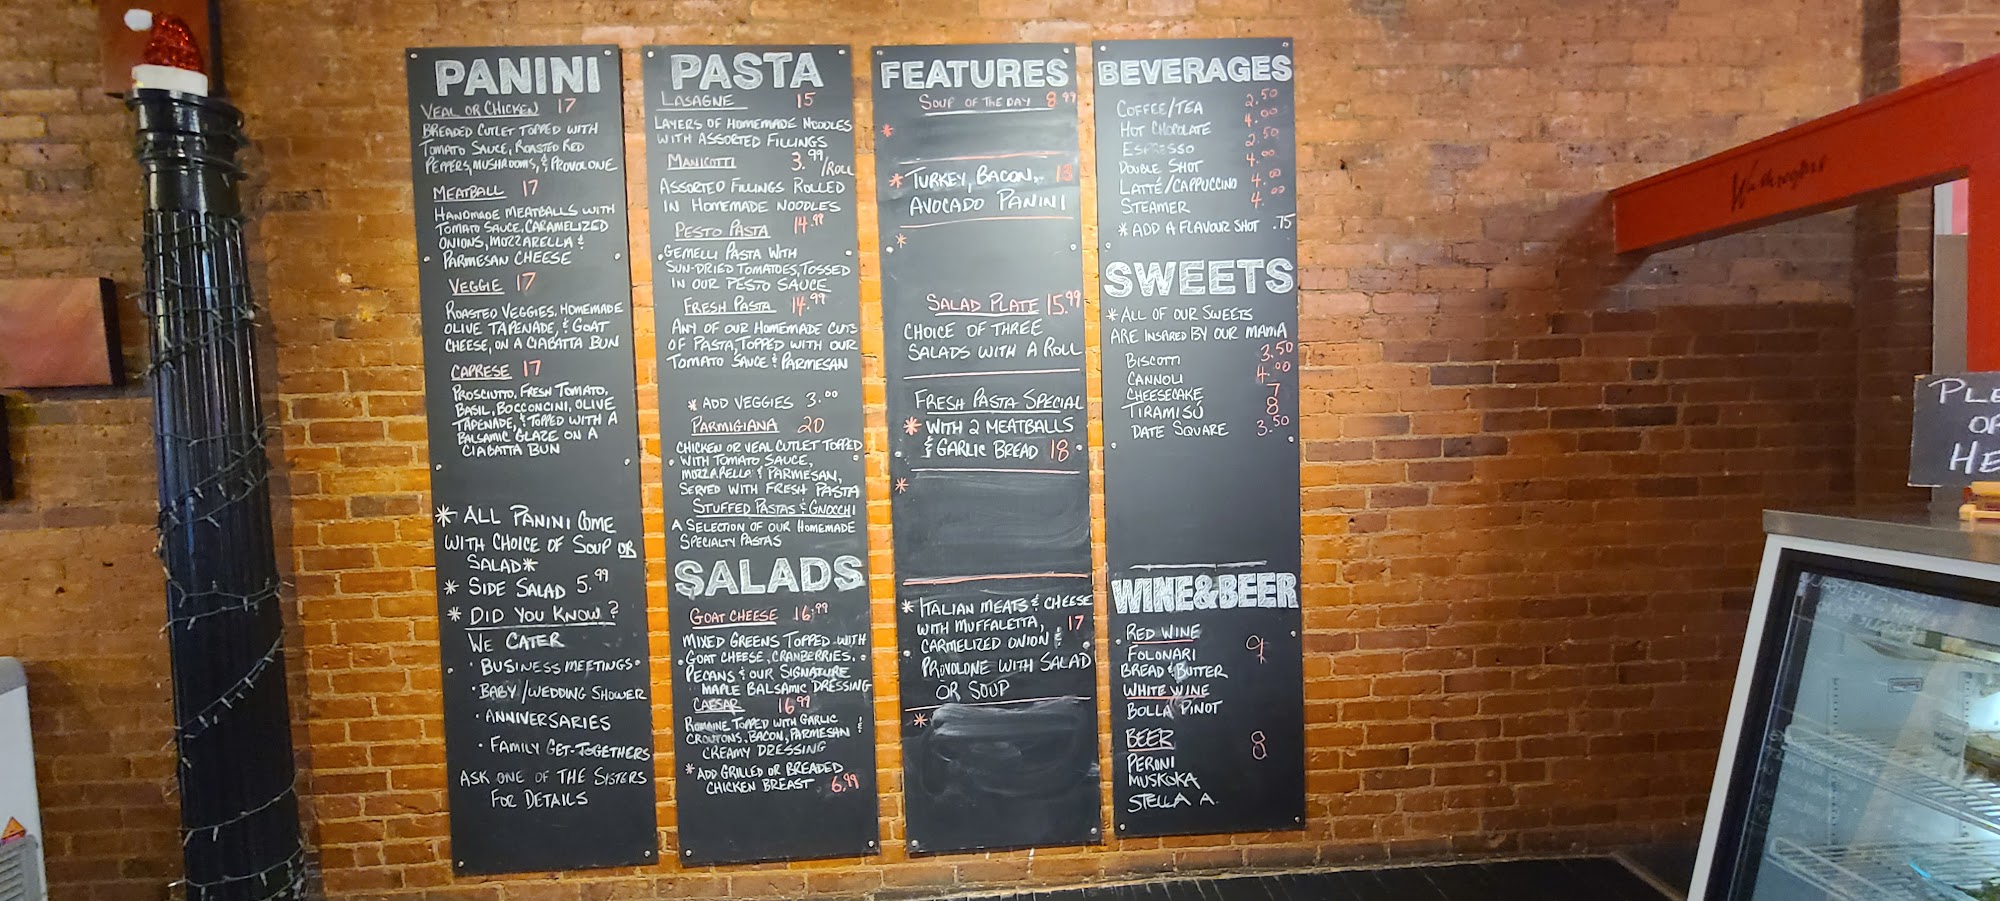 PANINI
VEAL OR CHICKEN 17
BREADED CUTLET TOPPED WITH
TOMATO SAUCE, ROASTED RED
PEPPERS, MUSHROOMS, & PROVOLONE
MEATBALL 17
HANDMADE MEATBALLS WITH
TOMATO SAUCE, CARAMELIZED
ONIONS, MOZZARELLA &
PARMESAN CHEESE
VEGGIE 17
ROASTED VEGGIES, HOMEMADE
OLIVE TAPENADE, & GOAT
CHEESE, ON A CIABATTA BUN
CAPRESE 17
PROSCIUTTO, FRESH TOMATO,
BASIL, BOCCONCINI, OLIVE
TAPENADE, & TOPPED WITH A
BALSAMIC GLAZE ON A
CIABATTA BUN
* ALL PANINI COME
WITH CHOICE OF SOUP OR
SALAD *
* SIDE SALAD 5.99
* DID YOU KNOW?
WE CATER
· BUSINESS MEETINGS
· BABY/WEDDING SHOWER
· ANNIVERSARIES
· FAMILY GET-TOGETHERS
ASK ONE OF THE SISTERS
FOR DETAILS
PASTA
LASAGNE 15
LAYERS OF HOMEMADE NOODLES
WITH ASSORTED FILLINGS
MANICOTTI 3.99/ROLL
ASSORTED FILLINGS ROLLED
IN HOMEMADE NOODLES
PESTO PASTA 14.99
GEMELLI PASTA WITH
SUN-DRIED TOMATOES, TOSSED
IN OUR PESTO SAUCE
FRESH PASTA 14.99
ANY OF OUR HOMEMADE CUTS
OF PASTA, TOPPED WITH OUR
TOMATO SAUCE & PARMESAN
* ADD VEGGIES 3.00
PARMIGIANA 20
CHICKEN OR VEAL CUTLET TOPPED
WITH TOMATO SAUCE,
MOZZARELLA & PARMESAN,
SERVED WITH FRESH PASTA
STUFFED PASTAS & GNOCCHI
A SELECTION OF OUR HOMEMADE
SPECIALTY PASTAS
SALADS
GOAT CHEESE 16.99
MIXED GREENS TOPPED WITH
GOAT CHEESE, CRANBERRIES,
PECANS & OUR SIGNATURE
MAPLE BALSAMIC DRESSING
CAESAR 16.99
ROMAINE TOPPED WITH GARLIC
CROUTONS, BACON, PARMESAN &
CREAMY DRESSING
* ADD GRILLED OR BREADED
CHICKEN BREAST 6.99
FEATURES
SOUP OF THE DAY 8.99
*
* TURKEY, BACON, 13
AVOCADO PANINI
*
SALAD PLATE 15.99
CHOICE OF THREE
SALADS WITH A ROLL
FRESH PASTA SPECIAL
* WITH 2 MEATBALLS
& GARLIC BREAD 18
*
* ITALIAN MEATS & CHEESE
WITH MUFFALETTA, 17
CARMELIZED ONION &
PROVOLONE WITH SALAD
OR SOUP
*
BEVERAGES
COFFEE/TEA 2.50
HOT CHOCOLATE 4.00
ESPRESSO 2.50
DOUBLE SHOT 4.00
LATTÉ/CAPPUCCINO 4.00
STEAMER 4.00
* ADD A FLAVOUR SHOT .75
SWEETS
* ALL OF OUR SWEETS
ARE INSPIRED BY OUR MAMA
BISCOTTI 3.50
CANNOLI 4.00
CHEESECAKE 7
TIRAMISÚ 8
DATE SQUARE 3.50
WINE&BEER
RED WINE 9
FOLONARI
BREAD & BUTTER
WHITE WINE
BOLLA PINOT
BEER 8
PERONI
MUSKOKA
STELLA A.
PLE
OR
HE